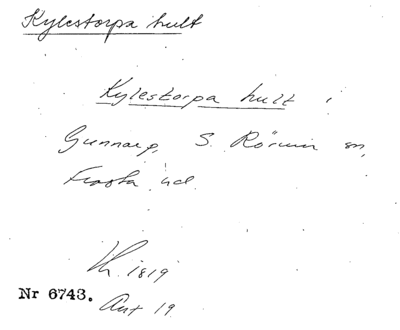 Kylestorpa hult
Kylestorpa hult i
Gunnarp, S. Rörum sn,
Frosta hd.
Kr. 1819
Nr 6743.
Ant 19